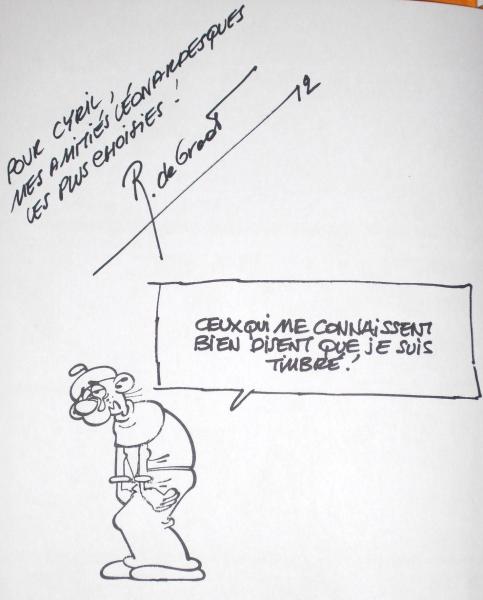 POUR CYRIL,
MES AMITIÉS LÉONARDESQUES
LES PLUS CHOISIES !
R. de Groot
12
CEUX QUI ME CONNAISSENT
BIEN DISENT QUE JE SUIS
TIMBRÉ !